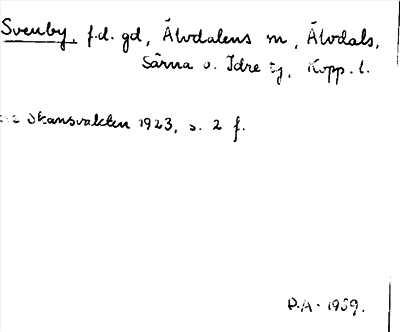 Svenby, f.d. gd, Älvdalens m, Älvdals,
Särna o. Idre tg, Kopp. l.
Skansvakten 1923, s. 2 f.
D.A. 1959.